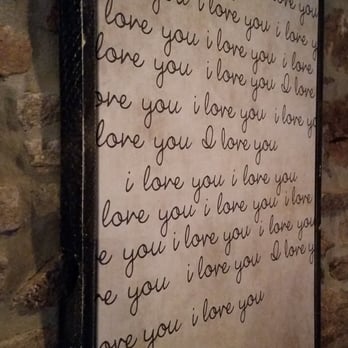 love you i love you
love you i love you i love y
love you i love you i love
ore you i love you I love you
ove you i love you i love yo
love you I love you
i love you i love you
love you i love you i love
e you i love you i love you
e you i love you I love y
ove you i love you